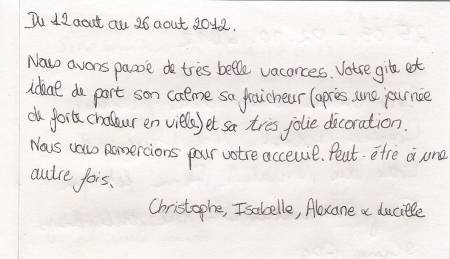 Du 12 aout au 26 aout 2012.
Nous avons passé de très belle vacances. Votre gite est
idéal de part son calme sa fraicheur (après une journée
de forte chaleur en ville) et sa très jolie décoration.
Nous vous remercions pour votre acceuil. Peut-être à une
autre fois.
Christophe, Isabelle, Alexane & Lucille